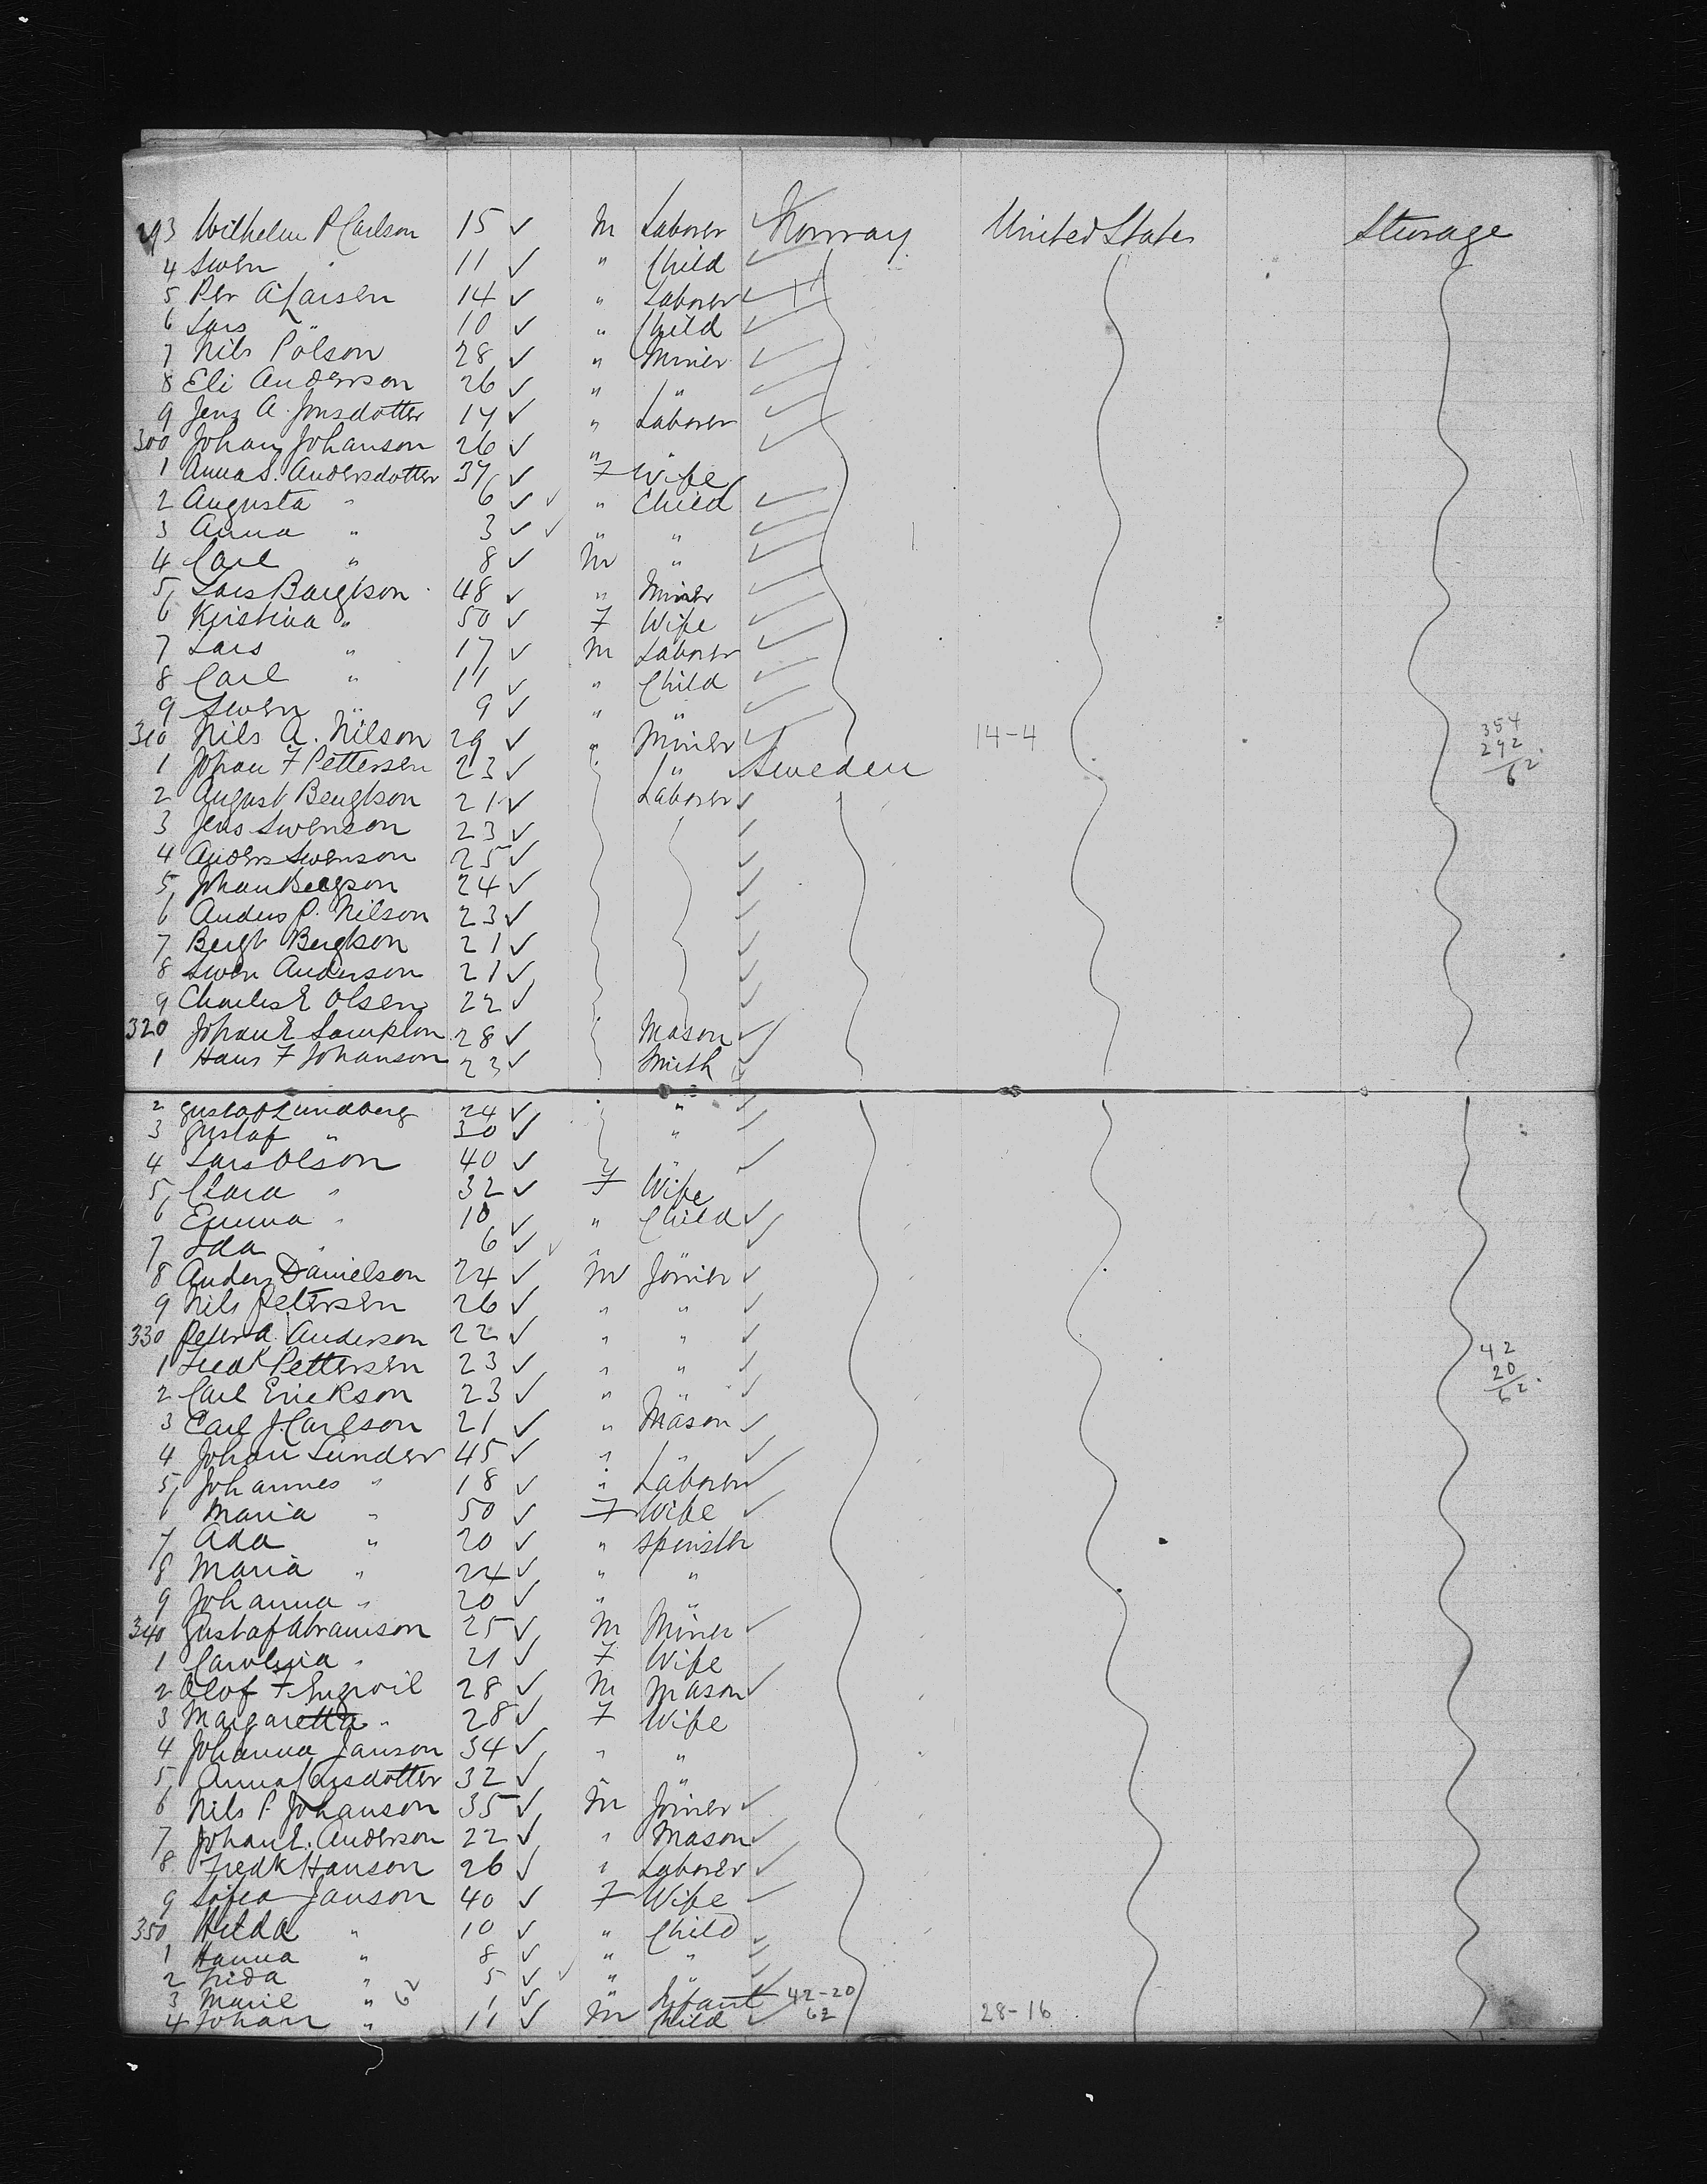 293 Wilhelm P Carlson 15 ✓ M Laborer ✓ Norway United States Sturage
4 Swen " 11 ✓ " Child ✓
5 Per A Larsen 14 ✓ " Laborer ✓
6 Lars " 10 ✓ " Child ✓
7 Nils Polson 28 ✓ " Miner ✓
8 Eli Anderson 26 ✓ " " ✓
9 Jens A. Jonsdotter 14 ✓ " Laborer ✓
300 Johan Johanson 26 ✓ " " ✓
1 Anna S. Andersdotter 37 ✓ F Wife
2 Augusta " 6 ✓ ✓ " Child ✓
3 Anna " 3 ✓ ✓ " " ✓
4 Carl " 8 ✓ M " ✓
5 Lars Bengtson 48 ✓ " Miner ✓
6 Kristina " 50 ✓ F Wife ✓
7 Lars " 17 ✓ M Laborer ✓
8 Carl " 11 ✓ " Child ✓
9 Swen " 9 ✓ " " ✓
310 Nils A. Nilson 29 ✓ " Miner ✓ 14-4 354
292
62
1 Johan F Pettersen 23 ✓ " ✓ Sweden
2 August Bengtson 21 ✓ Laborer ✓
3 Jens Swenson 23 ✓ ✓
4 Anders Swenson 25 ✓ ✓
5 Johan 24 ✓ ✓
6 Anders P. Nilson 23 ✓ ✓
7 Bengt Bengtson 21 ✓ ✓
8 Swen Anderson 21 ✓ ✓
9 Charles E Olsen 22 ✓ ✓
320 Johan E 28 ✓ Mason ✓
1 Hans F Johanson 23 ✓ Smith ✓
2 Gustaf Lundberg 24 ✓ " ✓
3 Gustaf " 30 ✓ " ✓
4 Lars Olson 40 ✓ " ✓
5 Clara " 32 ✓ F Wife
6 Emma " 10 ✓ " Child ✓
7 Ida " 6 ✓ ✓ " ✓
8 Anders Danielson 24 ✓ M Joiner ✓
9 Nils Petersen 26 ✓ " " ✓
330 Peter A. Anderson 22 ✓ " " ✓
42
20
62
1 Fredk Pettersen 23 ✓ " " ✓
2 Carl Erickson 23 ✓ " " ✓
3 Carl J. Carlson 21 ✓ " Mason ✓
4 Johan Sunder 45 ✓ " " ✓
5 Johannes " 18 ✓ " Laborer ✓
6 Maria " 50 ✓ F Wife ✓
7 Ada " 20 ✓ " Spinster
8 Maria " 24 ✓ " "
9 Johanna " 20 ✓ " "
340 Gustaf Abramson 25 ✓ M Miner ✓
1 Carolina " 21 ✓ F Wife
2 Olof F. 28 ✓ M Mason ✓
3 Margaretta " 28 ✓ F Wife
4 Johanna Janson 34 ✓ " "
5 Anna Larsdotter 32 ✓ " "
6 Nils P. Johanson 35 ✓ M Joiner ✓
7 Johan E. Anderson 22 ✓ " Mason ✓
8 Fredk Hanson 26 ✓ " Laborer ✓
9 Sofia Janson 40 ✓ F Wife ✓
350 Hilda " 10 ✓ " Child ✓
1 Hanna " 8 ✓ " " ✓
2 Frida " 5 ✓ ✓ " " ✓
3 Marie " 6 1 ✓ " Infant ✓ 42-20
4 Johan " 11 ✓ M Child ✓ 62 28-16